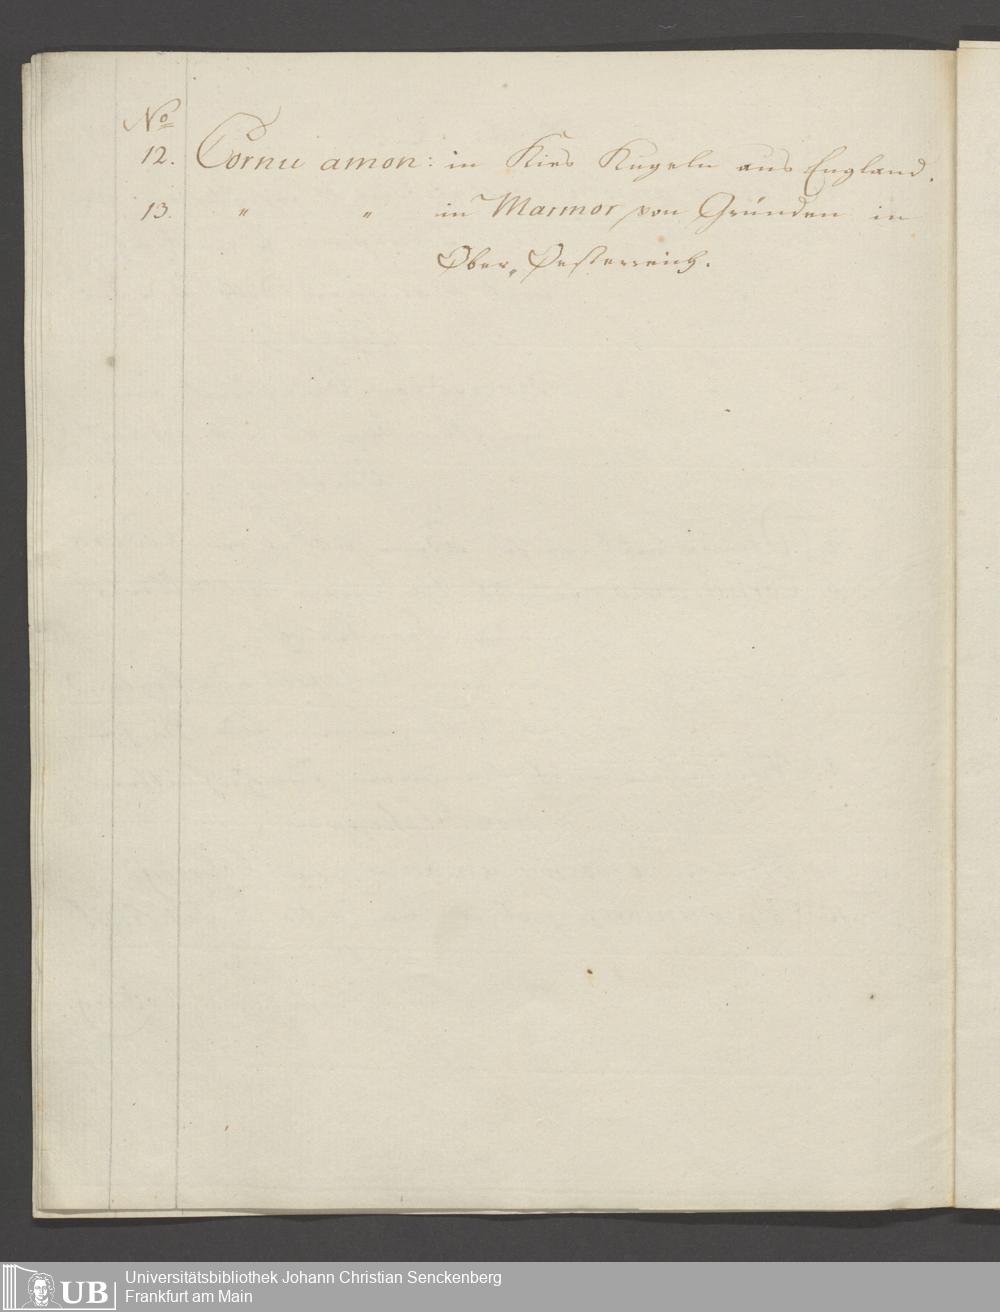 No
12. Cornu amon: in Kies Kugeln aus England.
13. " " in Marmor von Gründen in
Ober„ Oesterreich.
UB Universitätsbibliothek Johann Christian Senckenberg
Frankfurt am Main